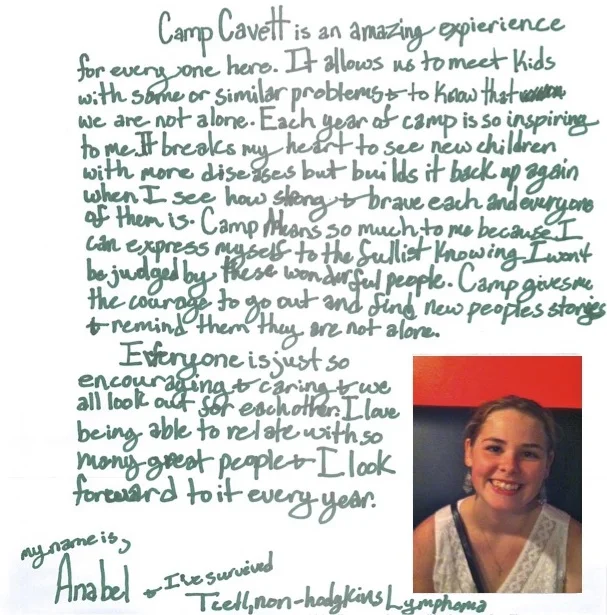 Camp Cavett is an amazing expierience
for everyone here. It allows us to meet kids
with same or similar problems & to know that
we are not alone. Each year of camp is so inspiring
to me. It breaks my heart to see new children
with more diseases but builds it back up again
when I see how strong & brave each and everyone
of them is. Camp Means so much to me because I
can express myself to the fullist knowing I won't
be judged by these wonderful people. Camp gives me
the courage to go out and find new peoples stories
& remind them they are not alone.
Everyone is just so
encouraging & caring & we
all look out for eachother. I love
being able to relate with so
many great people & I look
forward to it every year.
my name is,
Anabel & I've survived
Tcell, non-hodgkins Lymphoma